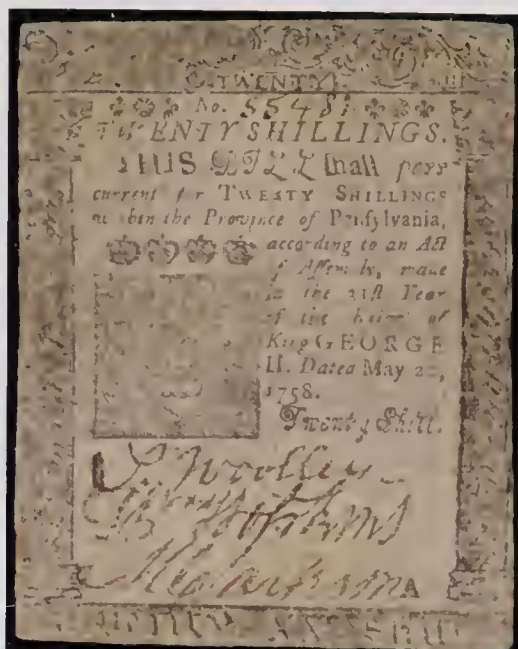 TWENTY
No. 55481
TWENTY SHILLINGS.
THIS BILL shall pass
current for TWENTY SHILLINGS
within the Province of Pensylvania,
according to an Act
of Assembly, made
in the 31st Year
of the Reign of
King GEORGE
II. Dated May 20,
1758.
Twenty Shill.
A